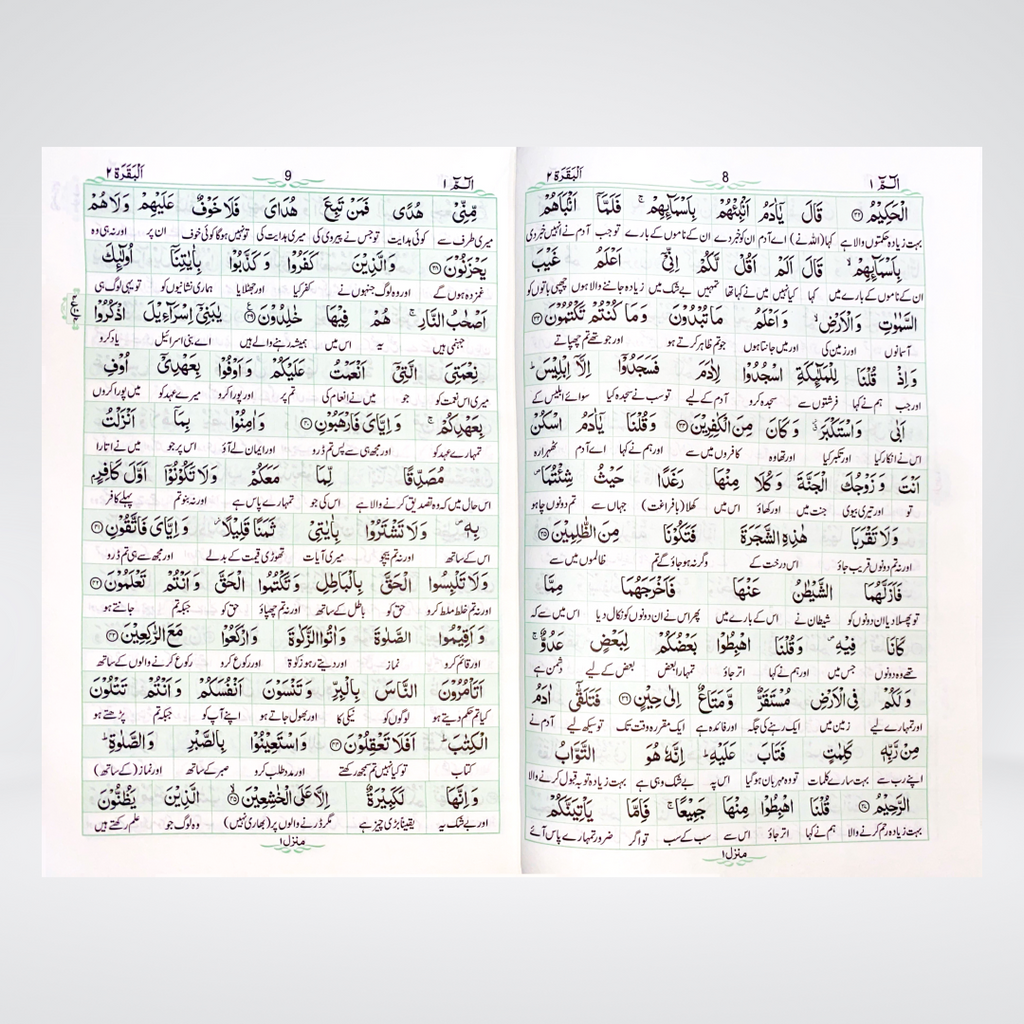 الٓمّٓ ١
8
اَلْبَقَرَة ٢
الْحَكِیْمُ ﴿۳۲﴾ قَالَ یٰۤاٰدَمُ اَنْۢبِئْهُمْ بِاَسْمَآىِٕهِمْ ۚ فَلَمَّاۤ اَنْۢبَاَهُمْ
بہت زیادہ حکمتوں والا ہے کہا (اللہ نے) اے آدم ان کو خبر دے ان کے ناموں کے بارے تو جب آدم نے انہیں خبر دی
بِاَسْمَآىِٕهِمْ ۙ قَالَ اَلَمْ اَقُلْ لَّكُمْ اِنِّیْۤ اَعْلَمُ غَیْبَ
ان کے ناموں کے بارے میں کہا کیا نہیں میں نے کہا تھا تمہیں بے شک میں زیادہ جاننے والا ہوں چھپی باتوں کو
السَّمٰوٰتِ وَ الْاَرْضِ ۙ وَ اَعْلَمُ مَا تُبْدُوْنَ وَ مَا كُنْتُمْ تَكْتُمُوْنَ ﴿۳۳﴾
آسمانوں اور زمین کی اور میں جانتا ہوں جو تم ظاہر کرتے ہو اور جو تھے تم چھپاتے
وَ اِذْ قُلْنَا لِلْمَلٰٓىِٕكَةِ اسْجُدُوْا لِاٰدَمَ فَسَجَدُوْۤا اِلَّاۤ اِبْلِیْسَ ؕ
اور جب ہم نے کہا فرشتوں سے سجدہ کرو آدم کے لیے تو سب نے سجدہ کیا سوائے ابلیس کے
اَبٰی وَ اسْتَكْبَرَ ۗ وَ كَانَ مِنَ الْكٰفِرِیْنَ ﴿۳۴﴾ وَ قُلْنَا یٰۤاٰدَمُ اسْكُنْ
اس نے انکار کیا اور تکبر کیا اور تھا وہ کافروں میں سے اور ہم نے کہا اے آدم ٹھہرا رہ
اَنْتَ وَ زَوْجُكَ الْجَنَّةَ وَ كُلَا مِنْهَا رَغَدًا حَیْثُ شِئْتُمَا ۪
تو اور تیری بیوی جنت میں اور کھاؤ اس میں کھلا (بافراغت) جہاں سے تم دونوں چاہو
وَ لَا تَقْرَبَا هٰذِهِ الشَّجَرَةَ فَتَكُوْنَا مِنَ الظّٰلِمِیْنَ ﴿۳۵﴾
اور نہ تم دونوں قریب جاؤ اس درخت کے وگرنہ ہو جاؤ گے تم ظالموں میں سے
فَاَزَلَّهُمَا الشَّیْطٰنُ عَنْهَا فَاَخْرَجَهُمَا مِمَّا
تو پھسلا دیا ان دونوں کو شیطان نے اس کے بارے میں پھر اس نے ان دونوں کو نکال دیا اس میں سے کہ
كَانَا فِیْهِ ۪ وَ قُلْنَا اهْبِطُوْا بَعْضُكُمْ لِبَعْضٍ عَدُوٌّ ۚ
تھے وہ دونوں جس میں اور ہم نے کہا اتر جاؤ تمہارا بعض بعض کے لیے دشمن ہے
وَ لَكُمْ فِی الْاَرْضِ مُسْتَقَرٌّ وَّ مَتَاعٌ اِلٰی حِیْنٍ ﴿۳۶﴾ فَتَلَقّٰۤی اٰدَمُ
اور تمہارے لیے زمین میں ایک رہنے کی جگہ اور فائدہ ہے ایک مقررہ وقت تک تو سیکھ لیے آدم نے
مِنْ رَّبِّهٖ كَلِمٰتٍ فَتَابَ عَلَیْهِ ؕ اِنَّهٗ هُوَ التَّوَّابُ
اپنے رب سے بہت سارے کلمات تو وہ مہربان ہو گیا اس پہ بے شک وہی ہے بہت زیادہ توبہ قبول کرنے والا
الرَّحِیْمُ ﴿۳۷﴾ قُلْنَا اهْبِطُوْا مِنْهَا جَمِیْعًا ۚ فَاِمَّا یَاْتِیَنَّكُمْ
بہت زیادہ رحم کرنے والا ہم نے کہا اتر جاؤ اس سے سب کے سب تو اگر ضرور تمہارے پاس آئے
منزل ١
الٓمّٓ ١
9
اَلْبَقَرَة ٢
مِّنِّیْ هُدًی فَمَنْ تَبِعَ هُدَایَ فَلَا خَوْفٌ عَلَیْهِمْ وَ لَا هُمْ
میری طرف سے کوئی ہدایت تو جس نے پیروی کی میری ہدایت کی تو نہیں ہوگا کوئی خوف ان پر اور نہ ہی وہ
یَحْزَنُوْنَ ﴿۳۸﴾ وَ الَّذِیْنَ كَفَرُوْا وَ كَذَّبُوْا بِاٰیٰتِنَاۤ اُولٰٓىِٕكَ
غمزدہ ہوں گے اور وہ لوگ جنہوں نے کفر کیا اور جھٹلایا ہماری نشانیوں کو تو یہی لوگ ہی
اَصْحٰبُ النَّارِ ۚ هُمْ فِیْهَا خٰلِدُوْنَ ﴿۳۹﴾ یٰبَنِیْۤ اِسْرَآءِیْلَ اذْكُرُوْا
جہنمی ہیں یہ اس میں ہمیشہ رہنے والے ہیں اے بنی اسرائیل یاد کرو
نِعْمَتِیَ الَّتِیْۤ اَنْعَمْتُ عَلَیْكُمْ وَ اَوْفُوْا بِعَهْدِیْۤ اُوْفِ
میری اس نعمت کو جو میں نے انعام کی تم پر اور پورا کرو میرے عہد کو میں پورا کروں
بِعَهْدِكُمْ ۚ وَ اِیَّایَ فَارْهَبُوْنِ ﴿۴۰﴾ وَ اٰمِنُوْا بِمَاۤ اَنْزَلْتُ
تمہارے عہد کو اور مجھ ہی سے پس تم ڈرو اور ایمان لے آؤ اس پر جو میں نے اتارا
مُصَدِّقًا لِّمَا مَعَكُمْ وَ لَا تَكُوْنُوْۤا اَوَّلَ كَافِرٍۭ
اس حال میں کہ وہ تصدیق کرنے والا ہے اس کی جو تمہارے پاس ہے اور نہ بنو تم پہلے کافر
بِهٖ ۪ وَ لَا تَشْتَرُوْا بِاٰیٰتِیْ ثَمَنًا قَلِیْلًا ؗ وَّ اِیَّایَ فَاتَّقُوْنِ ﴿۴۱﴾
اس کے ساتھ اور نہ تم بیچو میری آیات تھوڑی قیمت کے بدلے اور مجھ سے ہی تم ڈرو
وَ لَا تَلْبِسُوا الْحَقَّ بِالْبَاطِلِ وَ تَكْتُمُوا الْحَقَّ وَ اَنْتُمْ تَعْلَمُوْنَ ﴿۴۲﴾
اور نہ تم خلط ملط کرو حق کو باطل کے ساتھ اور نہ تم چھپاؤ حق کو جبکہ تم جانتے ہو
وَ اَقِیْمُوا الصَّلٰوةَ وَ اٰتُوا الزَّكٰوةَ وَ ارْكَعُوْا مَعَ الرّٰكِعِیْنَ ﴿۴۳﴾
اور قائم کرو نماز اور دیتے رہو زکوۃ اور رکوع کرو رکوع کرنے والوں کے ساتھ
اَتَاْمُرُوْنَ النَّاسَ بِالْبِرِّ وَ تَنْسَوْنَ اَنْفُسَكُمْ وَ اَنْتُمْ تَتْلُوْنَ
کیا تم حکم دیتے ہو لوگوں کو نیکی کا اور بھول جاتے ہو اپنے آپ کو جبکہ تم پڑھتے ہو
الْكِتٰبَ ؕ اَفَلَا تَعْقِلُوْنَ ﴿۴۴﴾ وَ اسْتَعِیْنُوْا بِالصَّبْرِ وَ الصَّلٰوةِ ؕ
کتاب تو کیا نہیں تم سمجھ رکھتے اور مدد طلب کرو صبر کے ساتھ اور نماز (کے ساتھ)
وَ اِنَّهَا لَكَبِیْرَةٌ اِلَّا عَلَی الْخٰشِعِیْنَ ﴿۴۵﴾ الَّذِیْنَ یَظُنُّوْنَ
اور بے شک یہ یقیناً بڑی چیز ہے مگر ڈرنے والوں پر (بھاری نہیں) وہ لوگ جو علم رکھتے ہیں
منزل ١